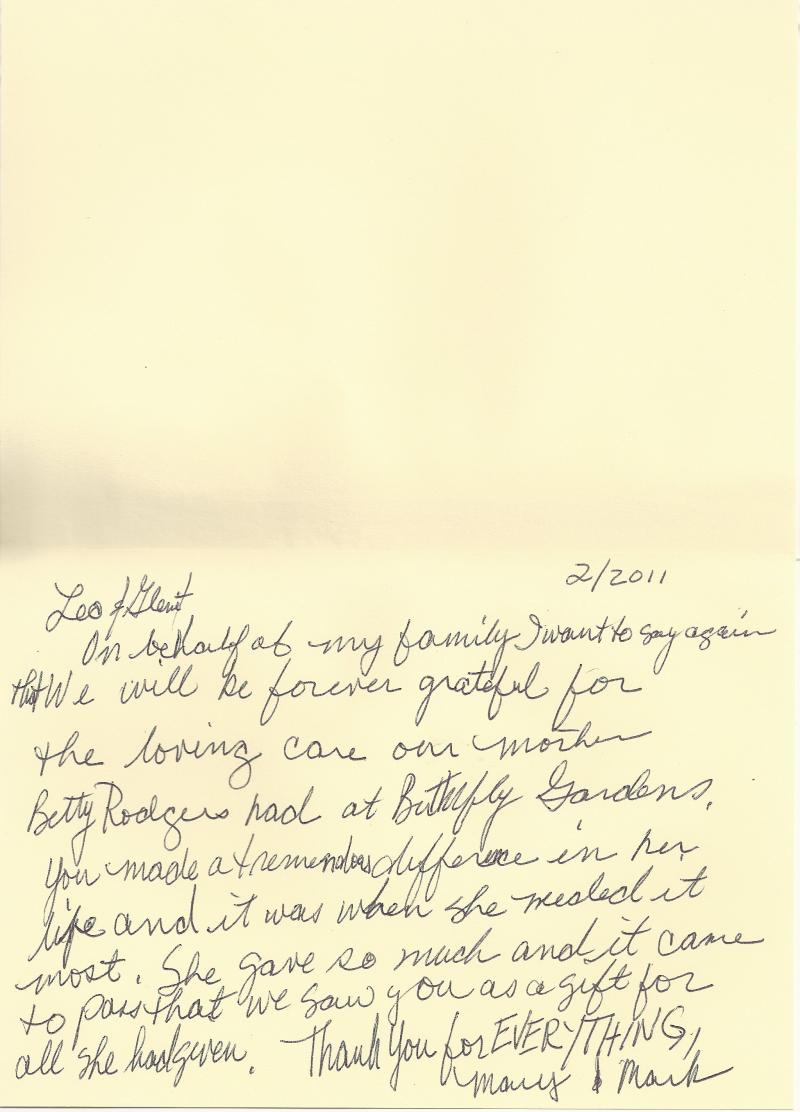 2/2011
Leo &
On behalf of my family I want to say again
that We will be forever grateful for
the loving care our mother
Betty Rodgers had at Butterfly Gardens.
You made a tremendous difference in her
life and it was when she needed it
most. She gave so much and it came
to pass that we saw you as a gift for
all she had given. Thank You for EVERYTHING,
Mary & Mark